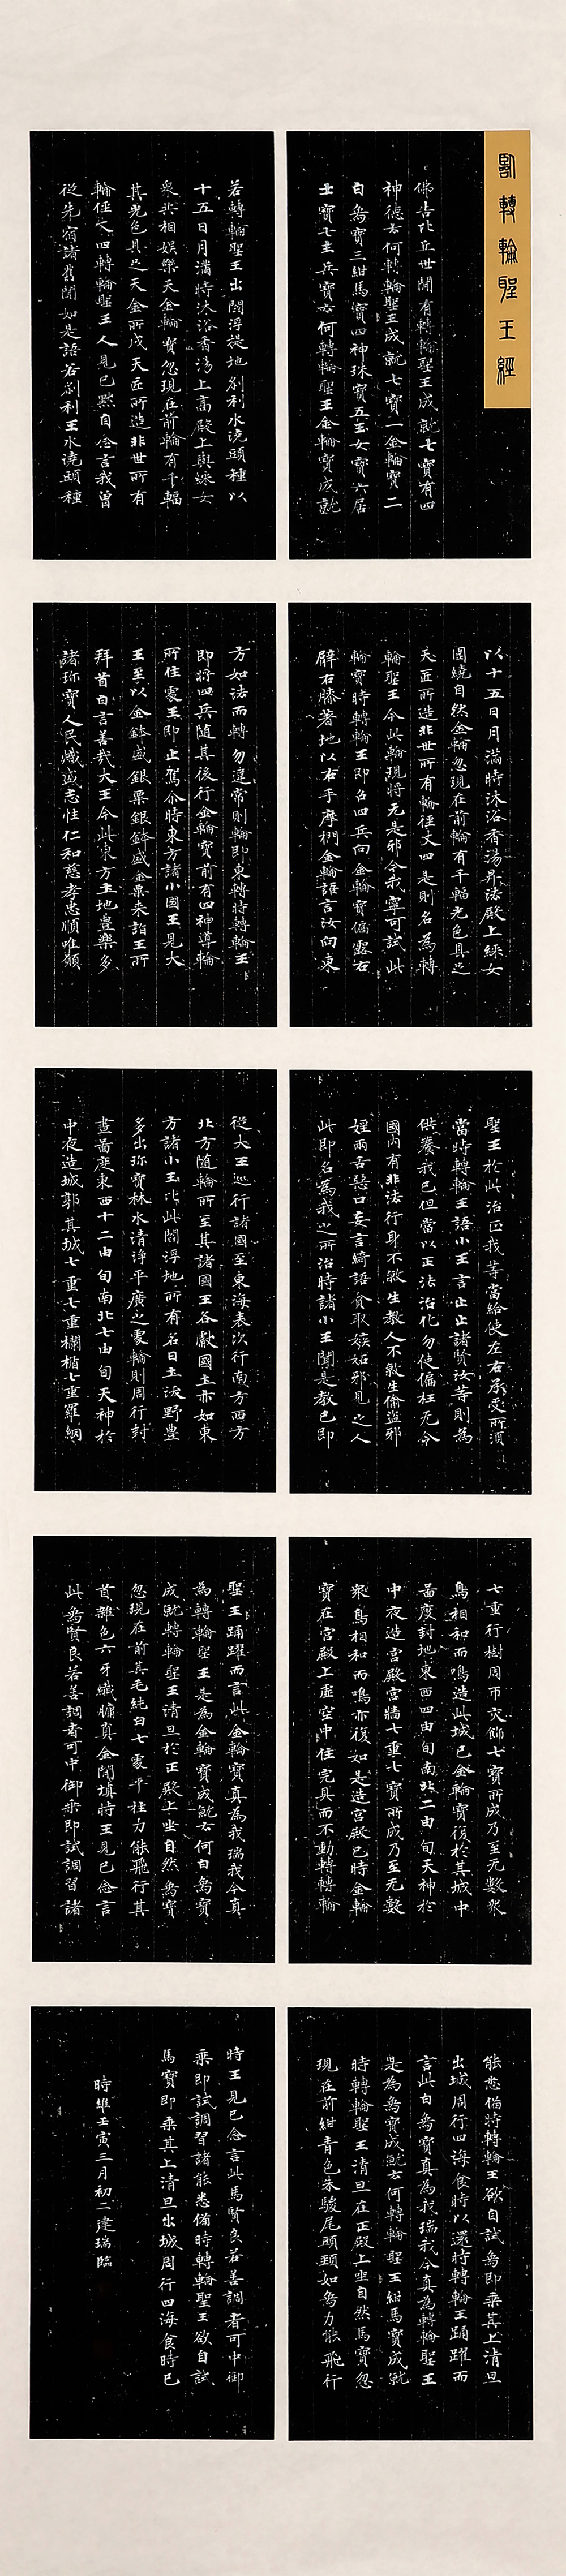 臨轉輪聖王經
佛告比丘世間有轉輪聖王成就七寶有四
神德云何轉輪聖王成就七寶一金輪寶二
白象寶三紺馬寶四神珠寶五玉女寶六居
士寶七主兵寶云何轉輪聖王金輪寶成就
若轉輪聖王出閻浮提地刹利水澆頭種以
十五日月滿時沐浴香湯上高殿上與婇女
衆共相娛樂天金輪寶忽現在前輪有千輻
其光色具足天金所成天匠所造非世所有
輪徑丈四轉輪聖王人見已默自念言我曾
從先宿諸舊聞如是語若刹利王水澆頭種
以十五日月滿時沐浴香湯昇法殿上婇女
圍繞自然金輪忽現在前輪有千輻光色具足
天匠所造非世所有輪徑丈四是則名為轉
輪聖王今此輪現將无是邪今我寧可試此
輪寶時轉輪王即召四兵向金輪寶偏露右
臂右膝著地以右手摩捫金輪語言汝向東
方如法而轉勿違常則輪即東轉時轉輪王
即將四兵隨其後行金輪寶前有四神導輪
所住處王即止駕尒時東方諸小國王見大
王至以金鉢盛銀粟銀鉢盛金粟来詣王所
拜首白言善哉大王今此東方土地豊樂多
諸珎寶人民熾盛志性仁和慈孝忠順唯願
聖王於此治正我等當給使左右承受所須
當時轉輪王語小王言止止諸賢汝等則為
供養我已但當以正法治化勿使偏枉无令
國內有非法行身不煞生教人不煞生偷盜邪
婬兩舌惡口妄言綺語貪取嫉妬邪見之人
此即名為我之所治時諸小王聞是教已即
從大王巡行諸國至東海表次行南方西方
北方隨輪所至其諸國王各獻國土亦如東
方諸小王比此閻浮地所有名曰土沃野豊
多出珎寶林水清淨平廣之處輪則周行封
畫啚度東西十二由旬南北七由旬天神於
中夜造城郭其城七重七重欄楯七重羅網
七重行樹周帀交飾七寶所成乃至无數衆
鳥相和而鳴造此城已金輪寶復於其城中
啚度封地東西四由旬南北二由旬天神於
中夜造宮殿宮牆七重七寶所成乃至无數
衆鳥相和而鳴亦復如是造宮殿已時金輪
寶在宮殿上虛空中住完具而不動轉轉輪
聖王踊躍而言此金輪寶真為我瑞我今真
為轉輪聖王是為金輪寶成就云何白象寶
成就轉輪聖王清旦於正殿上坐自然象寶
忽現在前其毛純白七處平住力能飛行其
首雜色六牙纖𦟛真金間填時王見已念言
此象賢良若善調者可中御乘即試調習諸
能悉備時轉輪王欲自試象即乘其上清旦
出城周行四海食時以還時轉輪王踊躍而
言此白象寶真為我瑞我今真為轉輪聖王
是為象寶成就云何轉輪聖王紺馬寶成就
時轉輪聖王清旦在正殿上坐自然馬寶忽
現在前紺青色朱騣尾頭頸如象力能飛行
時王見已念言此馬賢良若善調者可中御
乘即試調習諸能悉備時轉輪聖王欲自試
馬寶即乘其上清旦出城周行四海食時已
時維壬寅三月初二建瑞臨